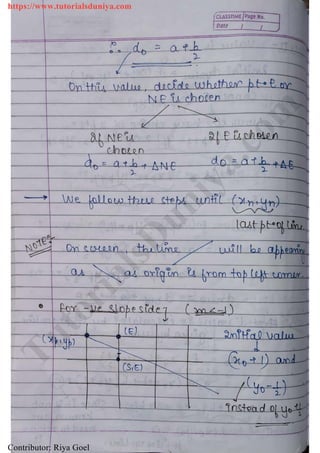 https://www.tutorialsduniya.com
CLASSTIME Page No.
Date / /
∴ d₀ = a + b/2
On this value, decide whether pt. E or
NE is chosen
If NE is chosen
d₀ = a + b/2 + ΔNE
If E is chosen
d₀ = a + b/2 + ΔE
→ We follow these steps until (xₙ, yₙ)
last pt of line.
NOTE:
On screen, the line / will be appearing
as \ as origin is from top left corner
• For -ve slope side; (m<-1)
(xp, yp)
(E)
(SE)
Initial value
(x₀ + 1) and
(y₀ - 1/2)
instead of y₀ + 1/2
TutorialsDuniya.com
Contributor: Riya Goel